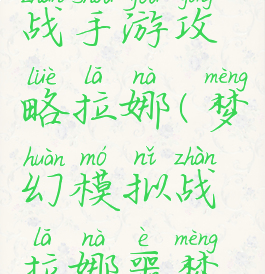 zhàn shǒu yóu gōng
战手游攻
lüè lā nà mèng
略拉娜(梦
huàn mó nǐ zhàn
幻模拟战
lā nà è mèng
拉娜噩梦